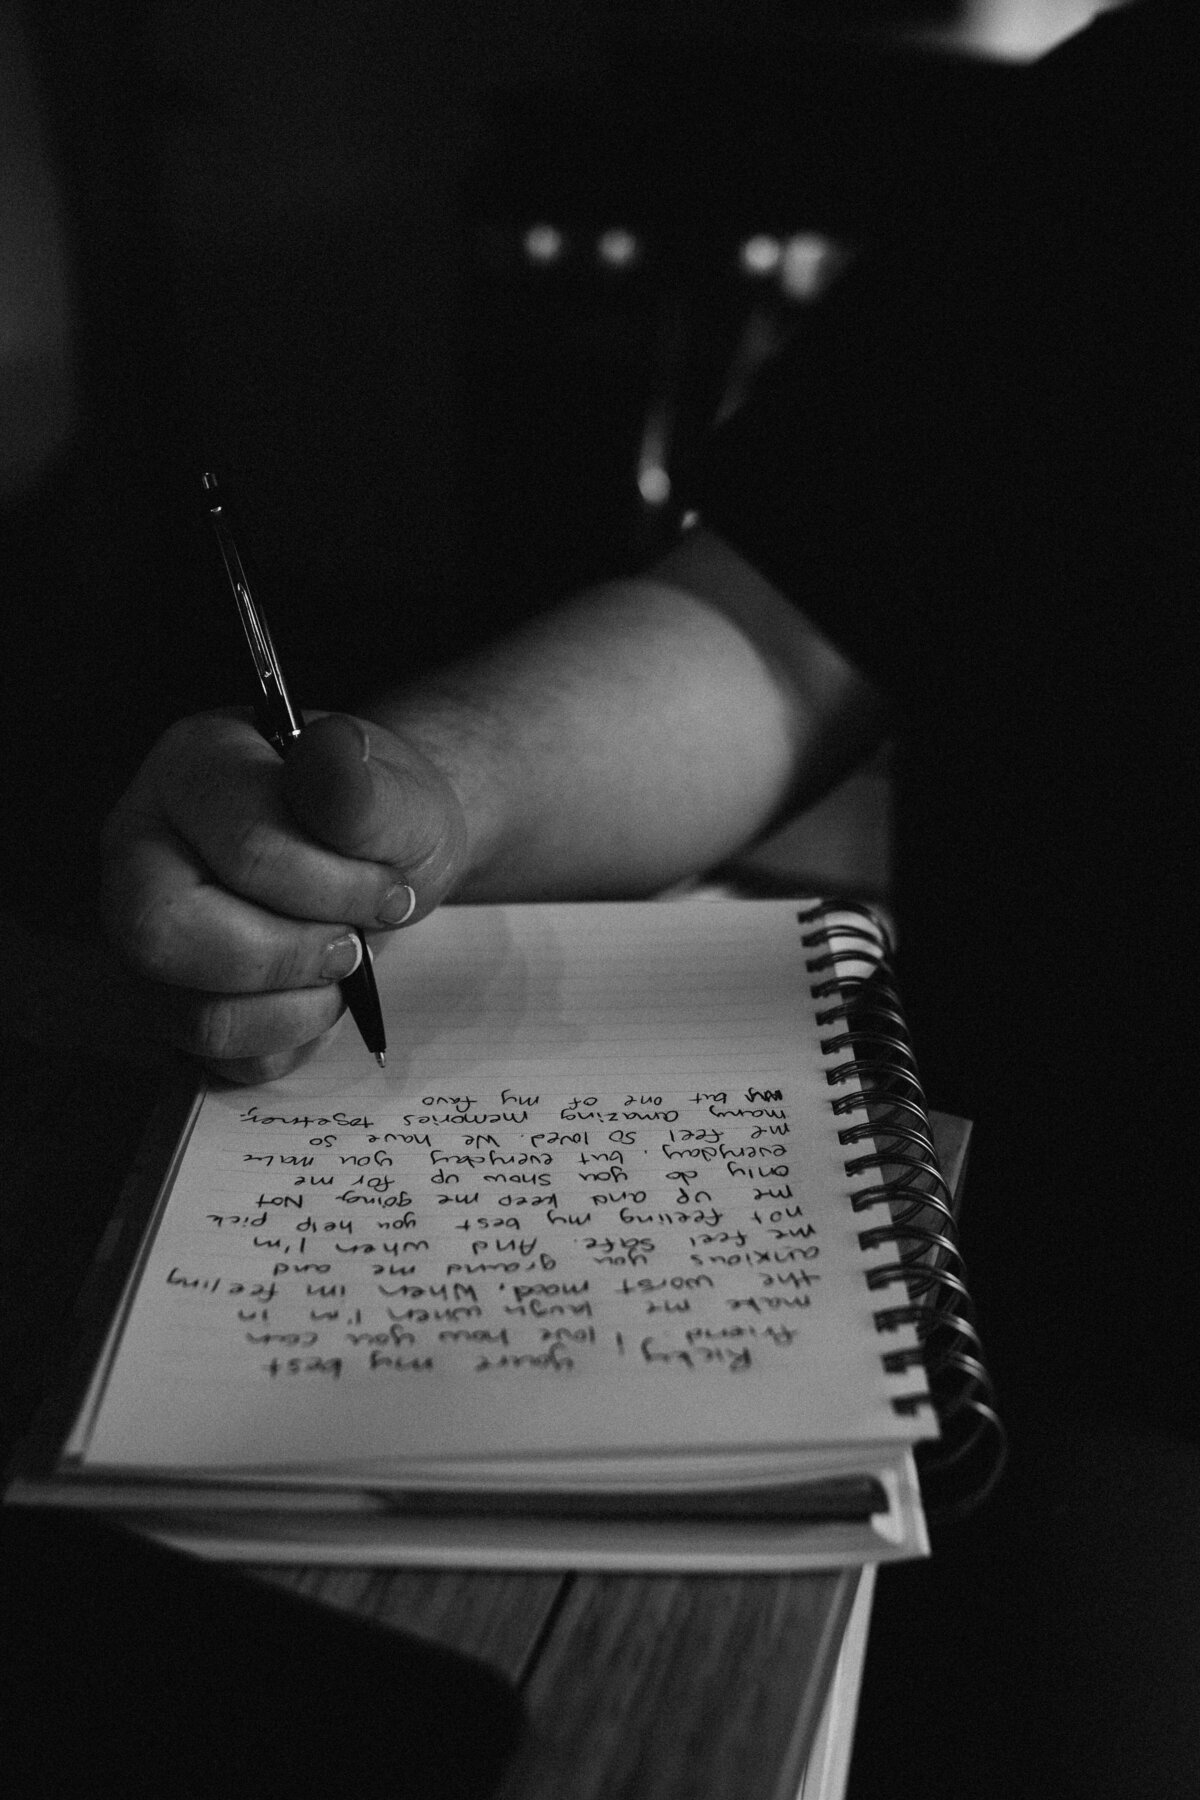 Ricky, youre my best
friend. I love how you can
make me laugh when I'm in
the worst mood, when im feeling
anxious you ground me and
me feel safe. And when I'm
not feeling my best you help pick
me up and keep me going. Not
only do you show up for me
everyday, but everyday you make
me feel so loved. We have so
many amazing memories together,
but one of my favo